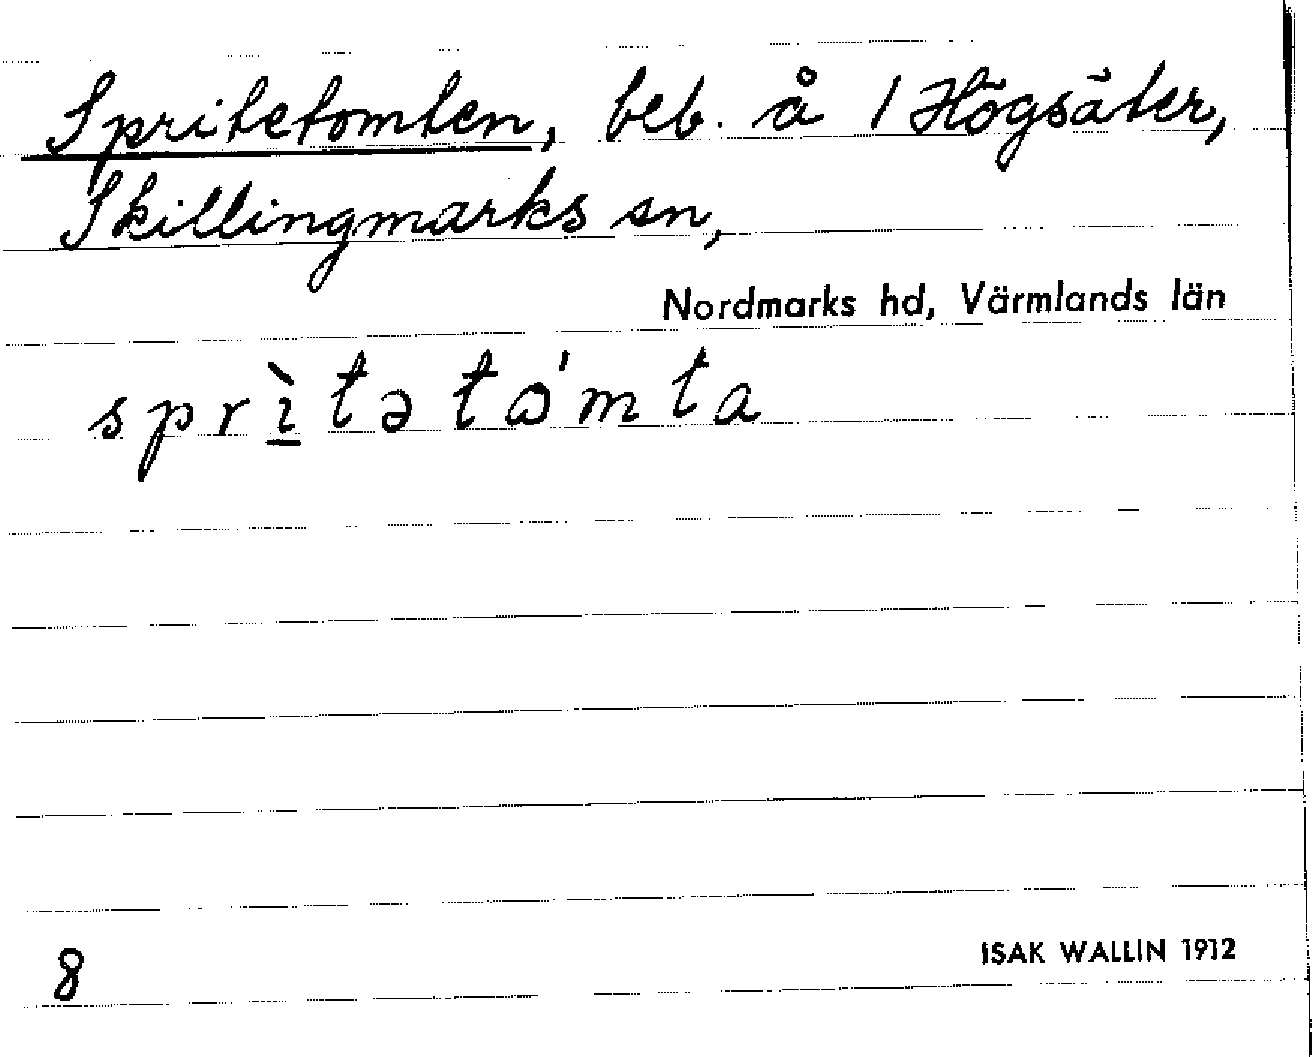 Spritetomten, beb. å 1 Högsäter,
Skillingmarks sn,
Nordmarks hd, Värmlands län
sprìtətɷ́mta
8
ISAK WALLIN 1912